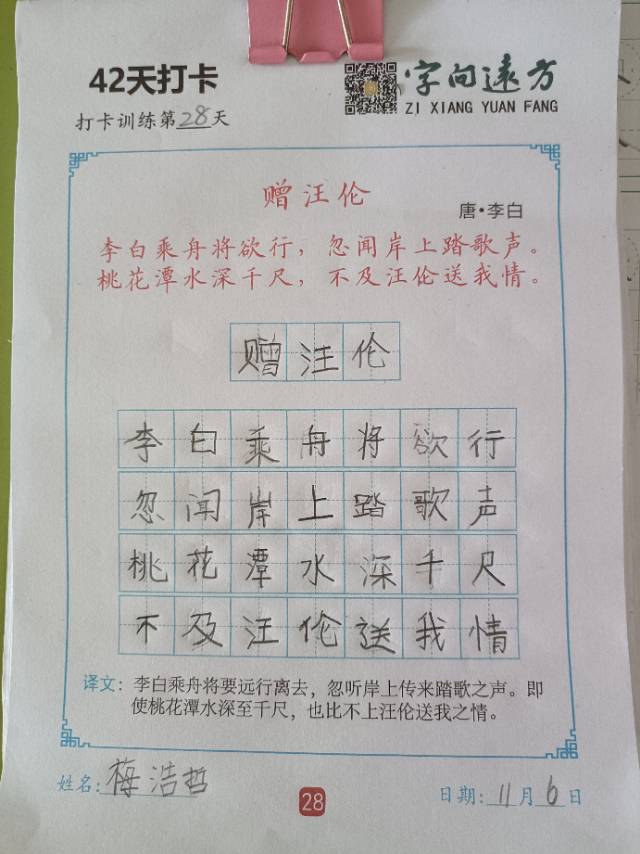 42天打卡
字向遠方
ZI XIANG YUAN FANG
打卡训练第28天
赠汪伦
唐·李白
李白乘舟将欲行，忽闻岸上踏歌声。
桃花潭水深千尺，不及汪伦送我情。
赠汪伦
李白乘舟将欲行
忽闻岸上踏歌声
桃花潭水深千尺
不及汪伦送我情
译文：李白乘舟将要远行离去，忽听岸上传来踏歌之声。即
使桃花潭水深至千尺，也比不上汪伦送我之情。
姓名：梅浩哲
28
日期：11月6日